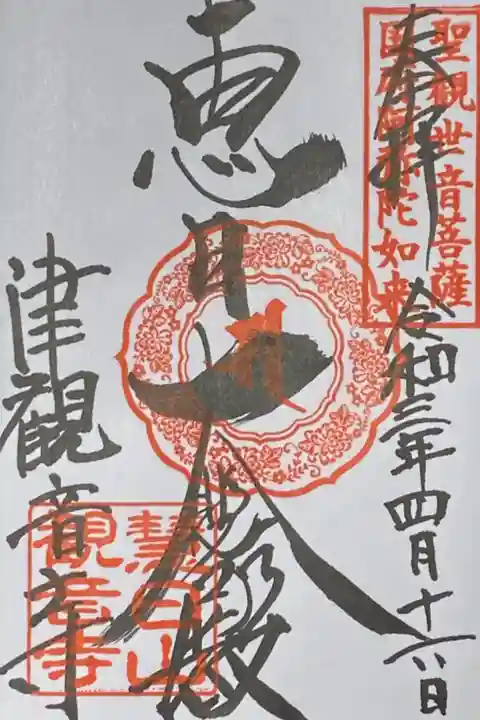 聖観世音菩薩
国府阿弥陀如来
奉拝
令和三年四月
恵日大
殿
津観音寺
慧日山
觀音寺